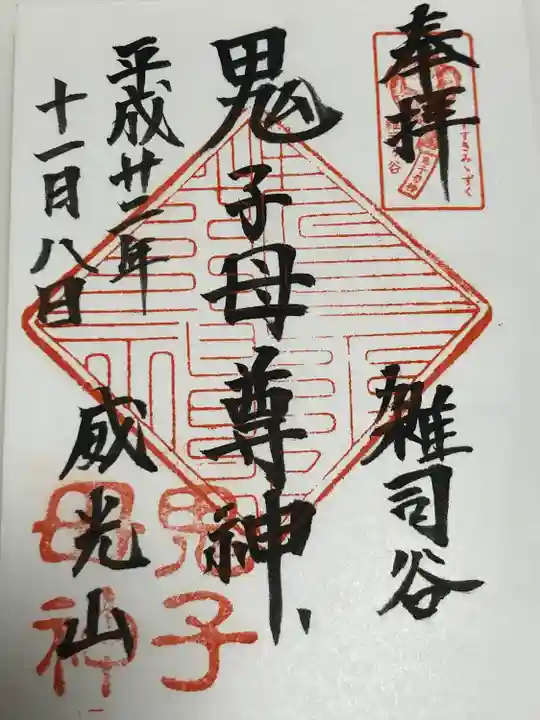 奉拝
雑司谷
鬼子母尊神
平成廿二年
十一月八日
威光山
すすきみゝずく
鬼子母神